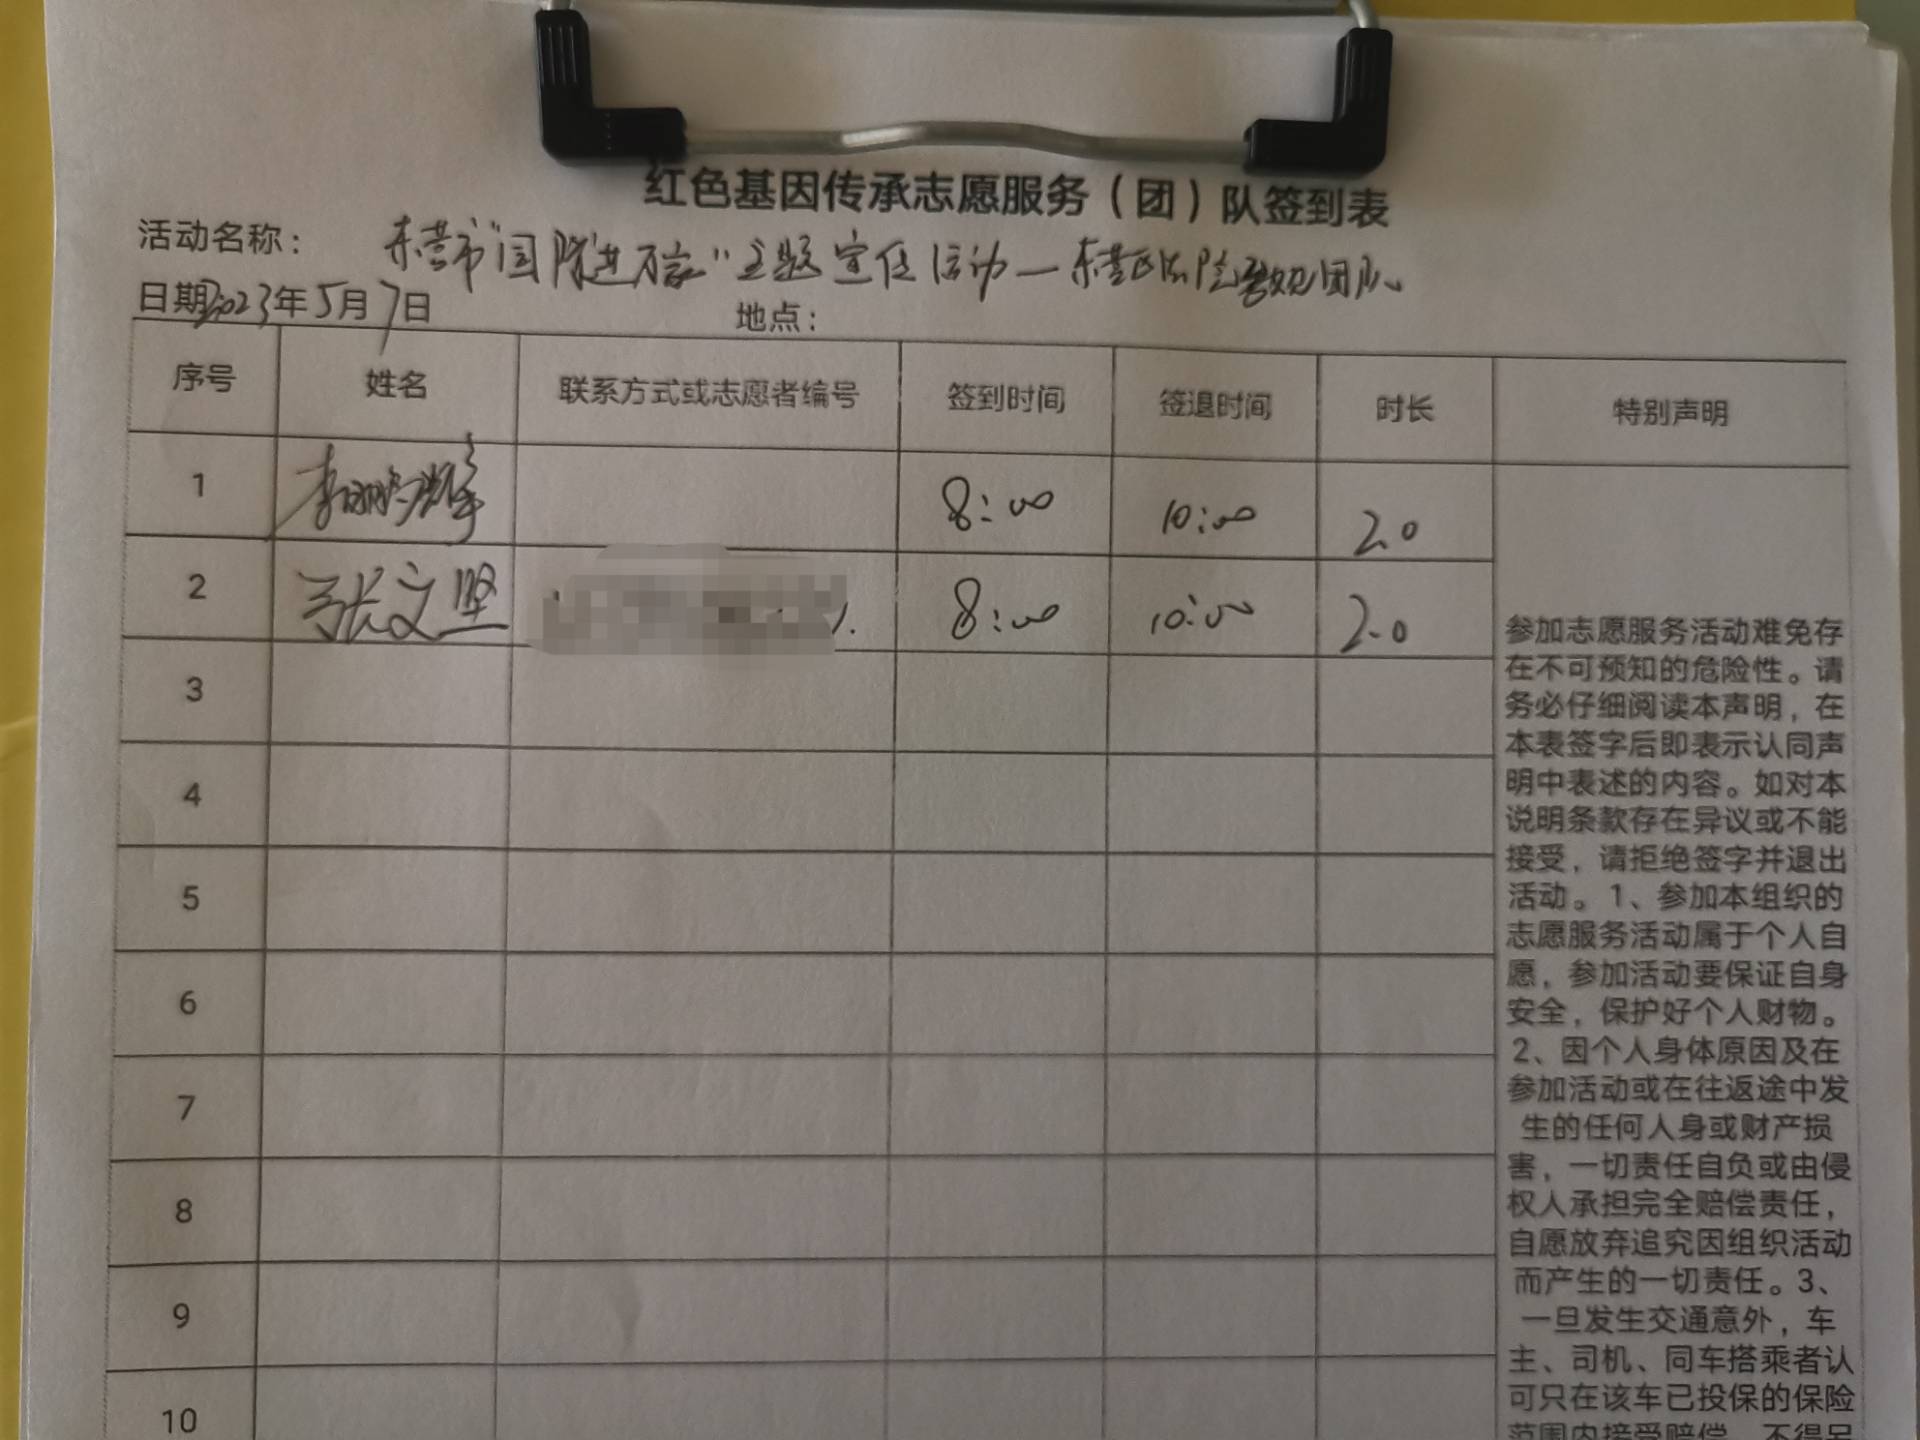 红色基因传承志愿服务（团）队签到表
活动名称： 东营市"国 进万家"主题宣 活动—东营区 院 团队
日期2023年5月7日 地点：
序号 姓名 联系方式或志愿者编号 签到时间 签退时间 时长 特别声明
1 李 8:00 10:00 2.0
2 张文坚 8:00 10:00 2.0
3
4
5
6
7
8
9
10
参加志愿服务活动难免存
在不可预知的危险性。请
务必仔细阅读本声明，在
本表签字后即表示认同声
明中表述的内容。如对本
说明条款存在异议或不能
接受，请拒绝签字并退出
活动。1、参加本组织的
志愿服务活动属于个人自
愿，参加活动要保证自身
安全，保护好个人财物。
2、因个人身体原因及在
参加活动或在往返途中发
生的任何人身或财产损
害，一切责任自负或由侵
权人承担完全赔偿责任，
自愿放弃追究因组织活动
而产生的一切责任。3、
一旦发生交通意外，车
主、司机、同车搭乘者认
可只在该车已投保的保险
范围内接受赔偿，不得另